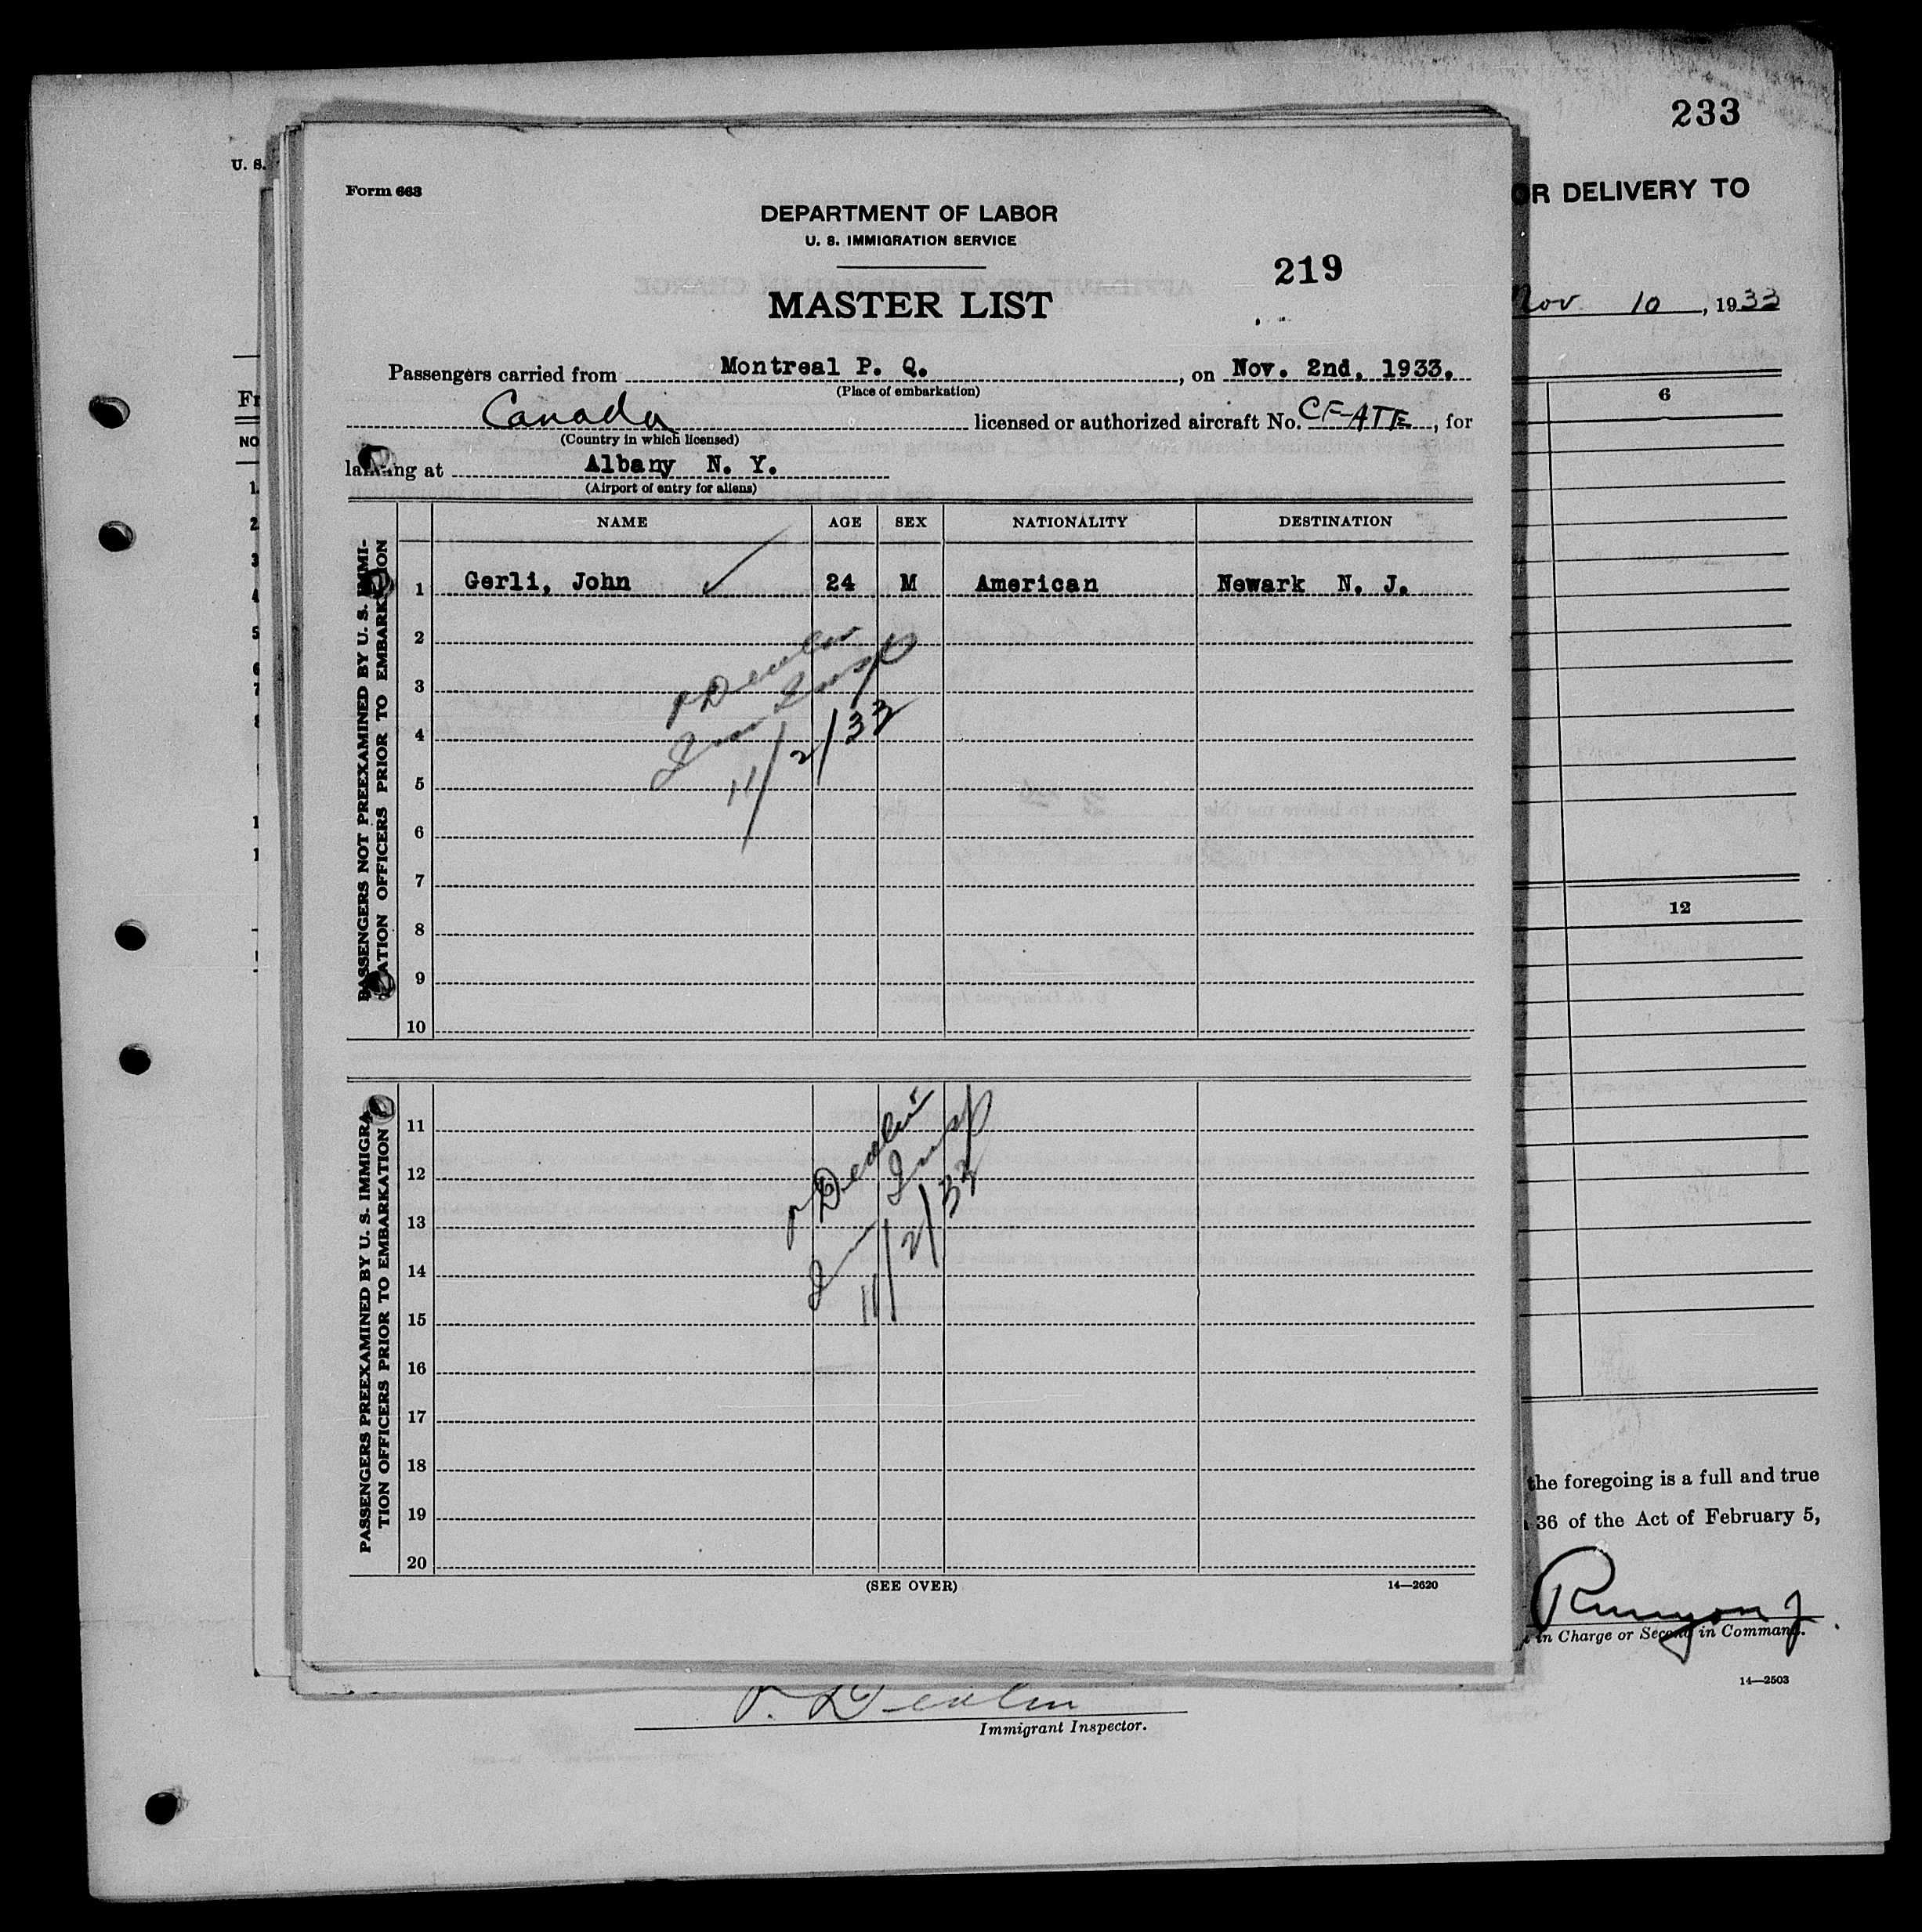 233
U. S.
OR DELIVERY TO
Nov 10, 1933
Form 663
DEPARTMENT OF LABOR
U. S. IMMIGRATION SERVICE
219
MASTER LIST
Passengers carried from Montreal P. Q., on Nov. 2nd, 1933.
(Place of embarkation)
Canada licensed or authorized aircraft No. CF-ATE, for
(Country in which licensed)
landing at Albany N. Y.
(Airport of entry for aliens)
NAME AGE SEX NATIONALITY DESTINATION
PASSENGERS NOT PREEXAMINED BY U. S. IMMI-
GRATION OFFICERS PRIOR TO EMBARKATION
1 Gerli, John 24 M American Newark N. J.
2
3
4
5
6
7
8
9
10
P Devlin
Imm Insp
11/2/33
PASSENGERS PREEXAMINED BY U. S. IMMIGRA-
TION OFFICERS PRIOR TO EMBARKATION
11
12
13
14
15
16
17
18
19
20
P Devlin
Imm Insp
11/2/33
(SEE OVER) 14—2620
6
12
the foregoing is a full and true
36 of the Act of February 5,
Runyon J
in Charge or Second in Command.
14—2503
P. Devlin
Immigrant Inspector.